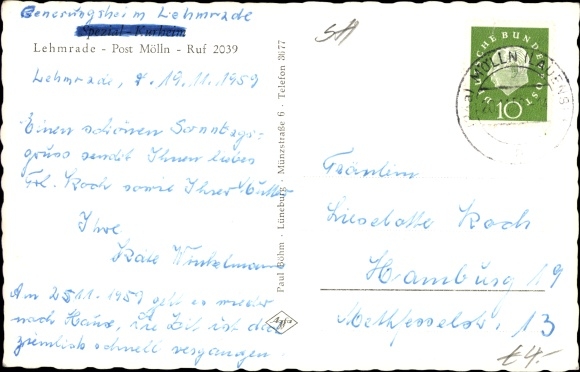 Genesungsheim Lehmrade
Spezial-Kurheim
Lehmrade - Post Mölln - Ruf 2039
Lehmrade, d. 19.11.1959
Einen schönen Sonntags-
gruss sendet Ihnen liebes
Frl. Koch sowie Ihrer Mutter
Ihre
Käte Winkelmann
Am 25.11.1959 geht es wieder
nach Haus, die Zeit ist doch
ziemlich schnell vergangen.
Paul Böhm · Lüneburg · Münzstraße 6 · Telefon 3177
Agfa
SH
DEUTSCHE BUNDESPOST
10
MÖLLN (LAUENB)
Fräulein
Lieselotte Koch
Hamburg 19
Methfesselstr. 13
€4.-